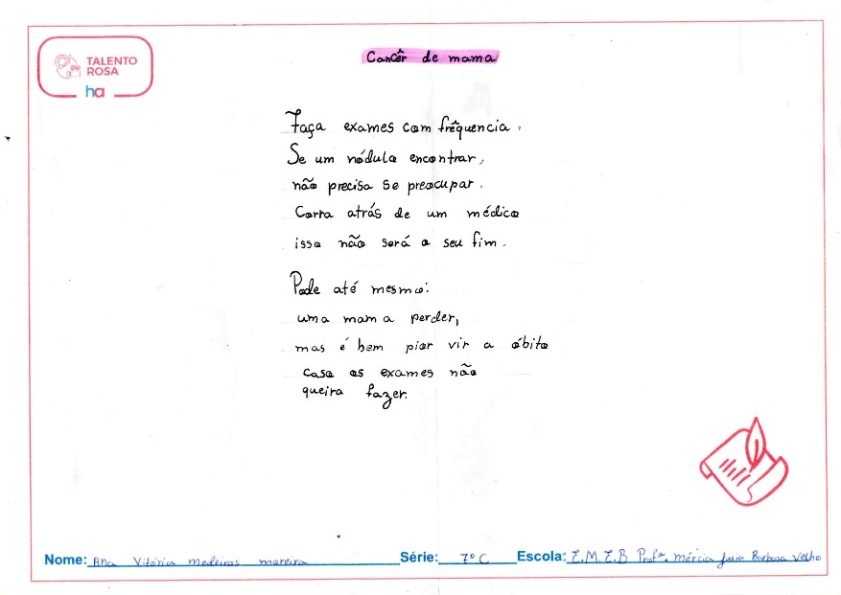 TALENTO
ROSA
ha
Cancêr de mama
Faça exames com frêquencia,
Se um nódulo encontrar,
não precisa se preocupar.
Corra atrás de um médico
isso não será o seu fim.
Pode até mesmo:
uma mama perder,
mas é bem pior vir a óbito
caso os exames não
queira fazer.
Nome: Ana Vitória medeiros moreira Série: 7º C Escola: E.M.E.B Profª. mércia Barbosa Velho